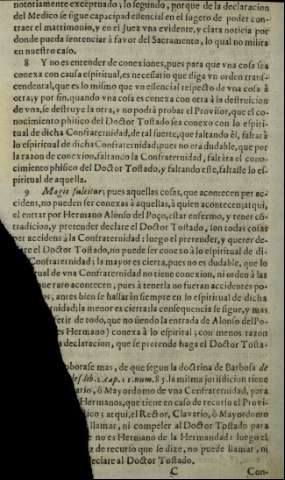 notoriamente exceptuado; lo segundo, porque de la declaracion
del Medico se sigue capacidad essencial en el sugeto de poder con-
traer el matrimonio, y en el Juez vna evidente, y clara noticia por
donde pueda sentenciar à favor del Sacramento, lo qual no milita
en nuestro caso.
8 Y no es entender de conexiones, pues para que vna cosa sea
conexa con causa espiritual, es necessario que diga vn orden trans-
cendental, que es lo mismo que vn essencial respecto de vna cosa à
otra; y por fin, quando vna cosa es conexa con otra à la destruicion
de vna, se destruye la otra, y no podrà probar el Provisor, que el co-
nocimiento phisico del Doctor Tostado sea conexo con lo espiri-
tual de dicha Confraternidad, de tal suerte, que faltando èl, faltarà
lo espiritual de dicha Confraternidad; pues no era dudable, que por
la razon de conexion, faltando la Confraternidad, faltàra el cono-
cimiento phisico del Doctor Tostado, y faltando este, faltasse lo es-
piritual de aquella.
9 Magis fulcitur; pues aquellas cosas, que acontecen per ac-
cidens, no pueden ser conexas à aquellas, à quien acontecen; atqui,
el entrar por Hermano Alonso del Poço, estar enfermo, y tener cō-
tradicion, y pretender declare el Doctor Tostado, son todas cosas
per accidens à la Confraternidad; luego el pretender, y querer de-
clare el Doctor Tostado, no puede ser conexo à lo espiritual de di-
Confraternidad; la mayor es cierta, pues no es dudable, que lo
ual de vna Confraternidad no tiene conexion, ni orden à las
ue raro acontecen, pues à tenerla no fueran accidentes po-
os; antes bien se hallaràn siempre en lo espiritual de dicha
nidad; la menor es cierta; la consequencia se sigue, y mas
ferir de todo, que no siendo la entrada de Alonso del Po-
es Hermano) conexa à lo espirital; con menos razon
a declaracion, que se pretende haga el Doctor Tosta-

oborase mas, de que segun la doctrina de Barbosa de
lib. 2. cap. 11. num. 85. la misma jurisdicion tiene
ario, ò Mayordomo de vna Confraternidad, para
Hermanos, que tiene en caso de recurso el Provi-
ico; atqui, el Rector, Clavario, ò Mayordomo
llamar, ni compeler al Doctor Tostado para
e no es Hermano de la Hermandad: luego el
z de recurso que se dize, no puede llamar, ni
eclare al Doctor Tostado.
C Con-